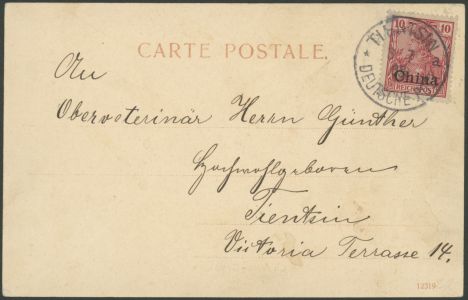 CARTE POSTALE.
10 10
China
REICHSPOST
TIENTSIN
a
DEUTSCHE
An
Oberveterinär Herrn Günther
Hochwohlgeboren
Tientsin
Victoria Terrasse 14.
12319